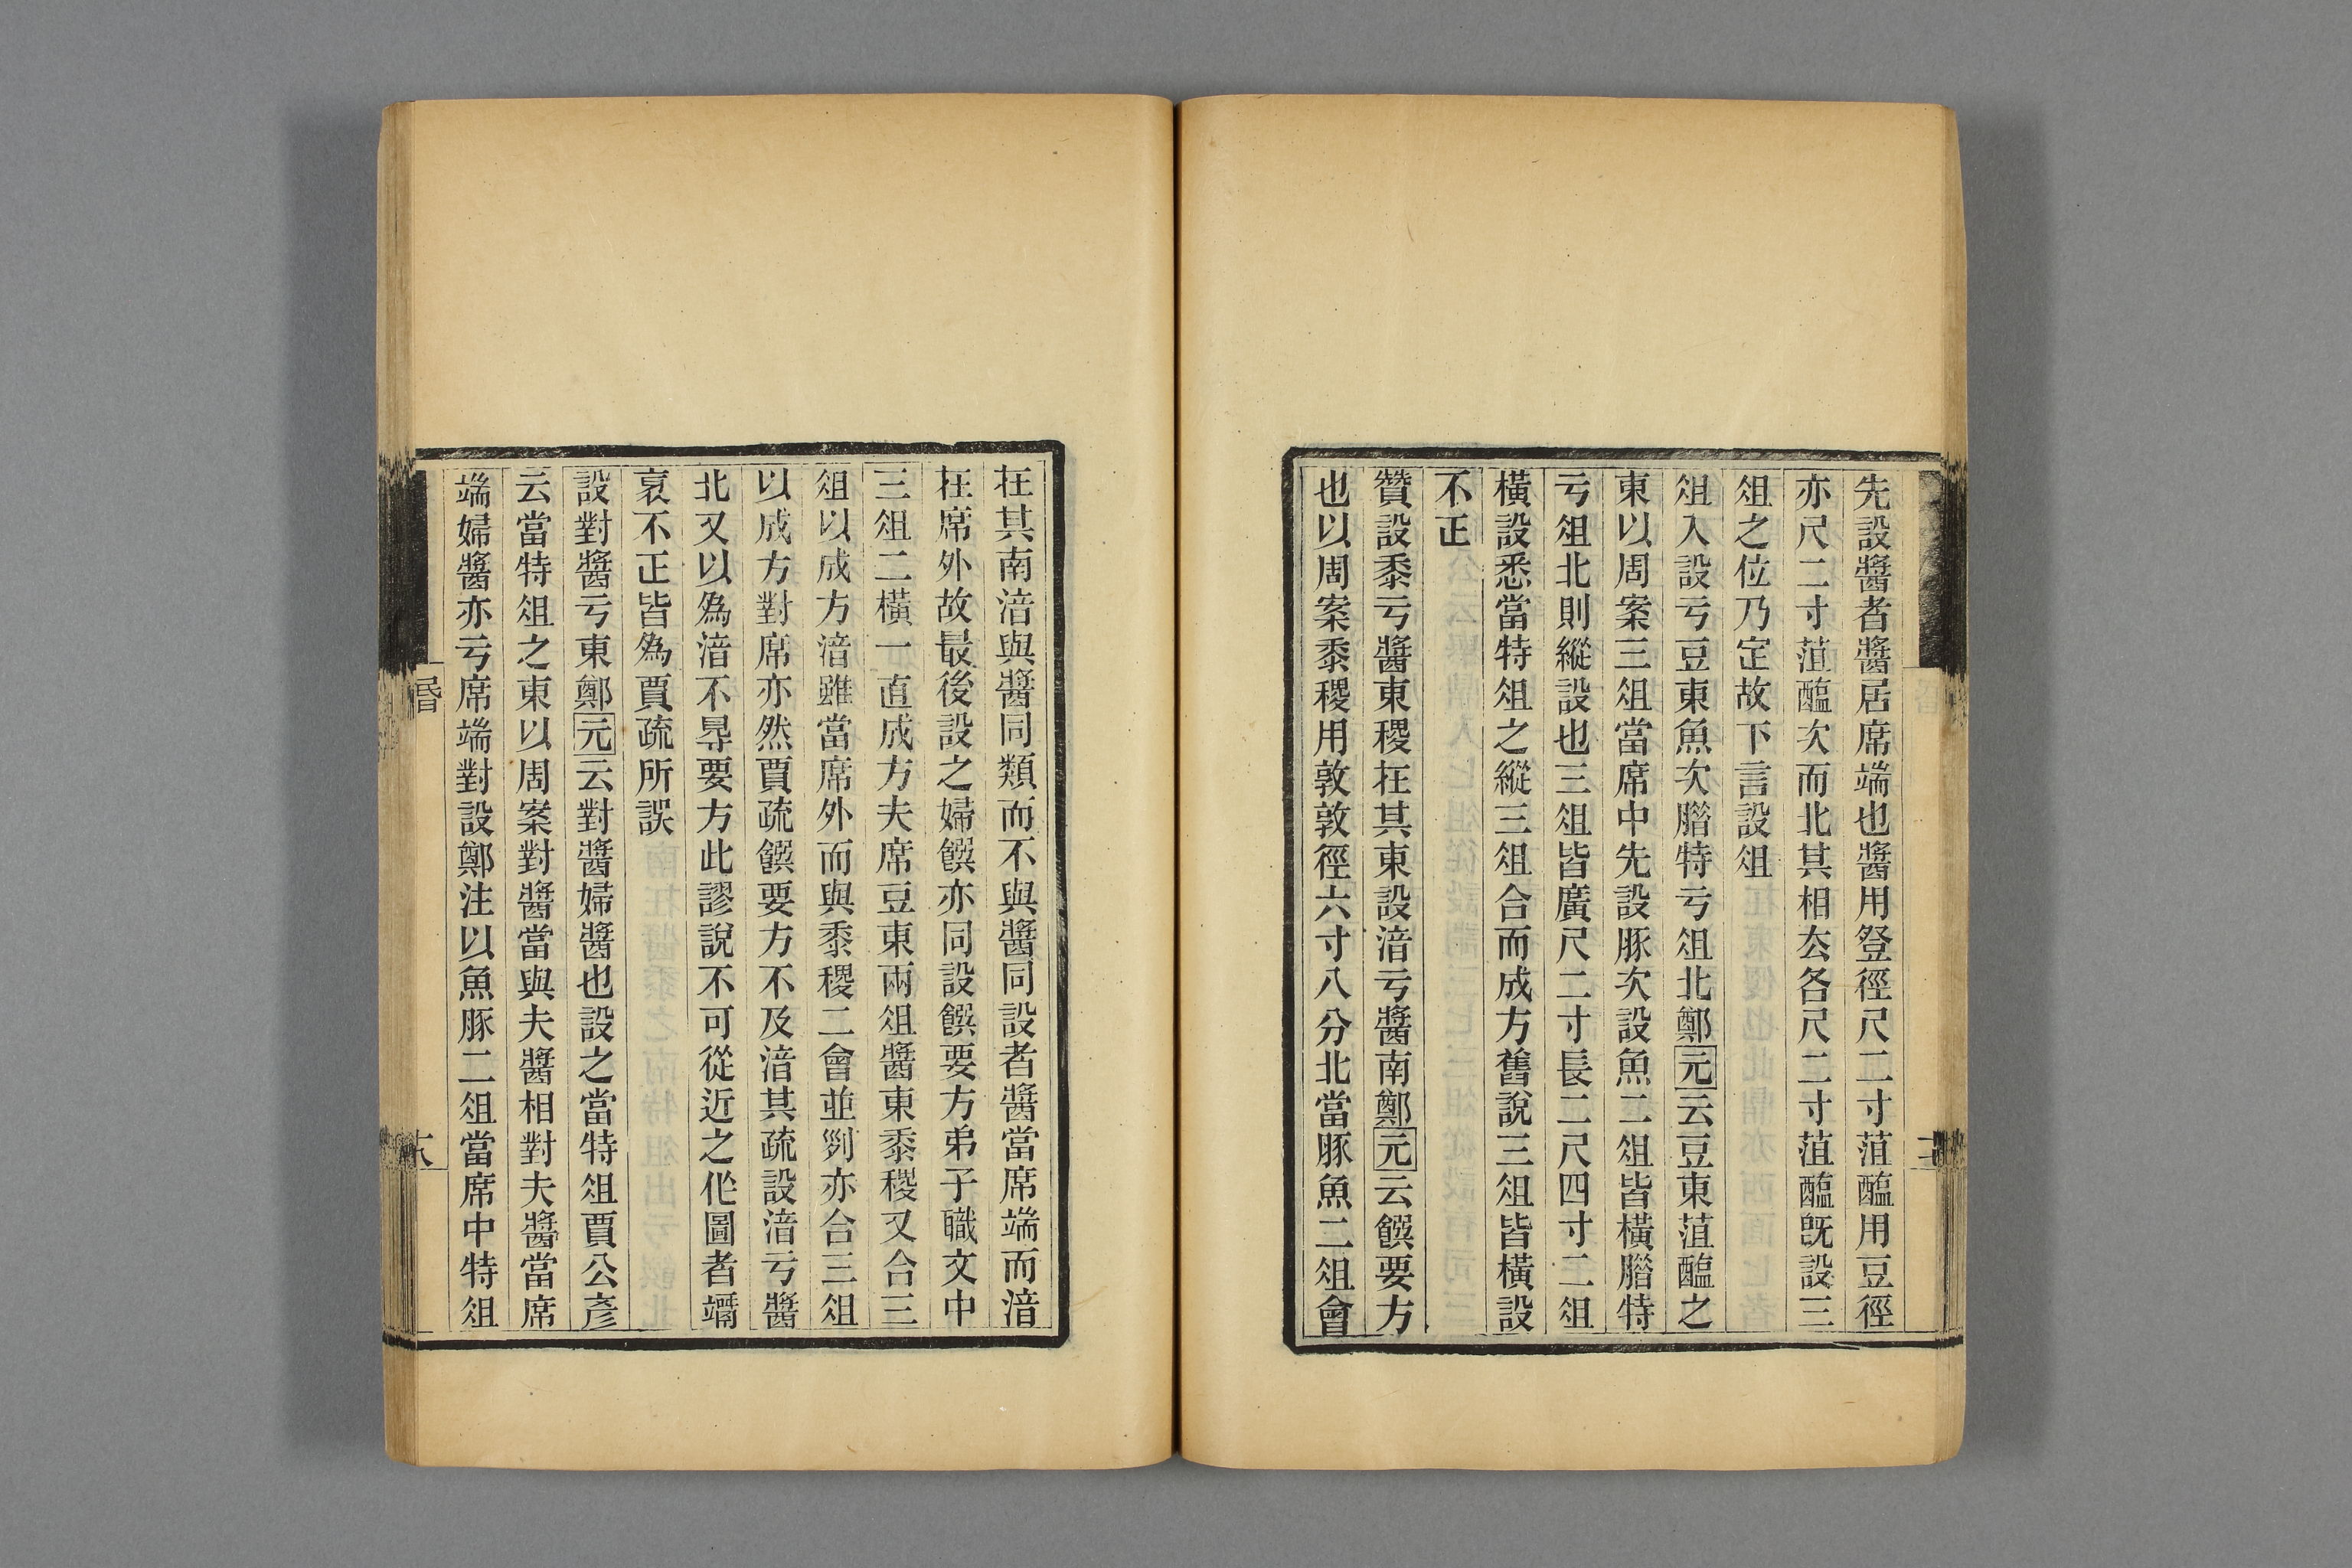 先設醬者醬居席端也醬用登徑尺二寸菹醢用豆徑
亦尺二寸菹醢次而北其相厺各尺二寸菹醢旣設三
俎之位乃定故下言設俎
俎入設亏豆東魚次腊特亏俎北鄭元云豆東菹醢之
東以周案三俎當席中先設豚次設魚二俎皆橫腊特
亏俎北則縱設也三俎皆廣尺二寸長二尺四寸二俎
橫設悉當特俎之縱三俎合而成方舊說三俎皆橫設
不正
贊設黍亏醬東稷在其東設湇亏醬南鄭元云饌要方
也以周案黍稷用敦敦徑六寸八分北當豚魚二俎會
在其南湇與醬同類而不與醬同設者醬當席端而湇
在席外故最後設之婦饌亦同設饌要方弟子職文中
三俎二橫一直成方夫席豆東兩俎醬東黍稷又合三
俎以成方湇雖當席外而與黍稷二會並列亦合三俎
以成方對席亦然賈疏饌要方不及湇其疏設湇亏醬
北又以爲湇不㝵要方此謬說不可從近之作圖者竵
衺不正皆爲賈疏所誤
設對醬亏東鄭元云對醬婦醬也設之當特俎賈公彥
云當特俎之東以周案對醬當與夫醬相對夫醬當席
端婦醬亦亏席端對設鄭注以魚豚二俎當席中特俎
昏